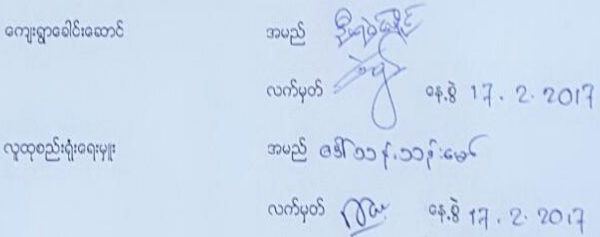 ကျေးရွာခေါင်းဆောင် အမည် ဦးရဲမြိုင်
လက်မှတ် နေ့စွဲ 17.2.2017
လူထုစည်းရုံးရေးမှူး အမည် ဒေါ်သန်းသန်းမော်
လက်မှတ် နေ့စွဲ 17.2.2017